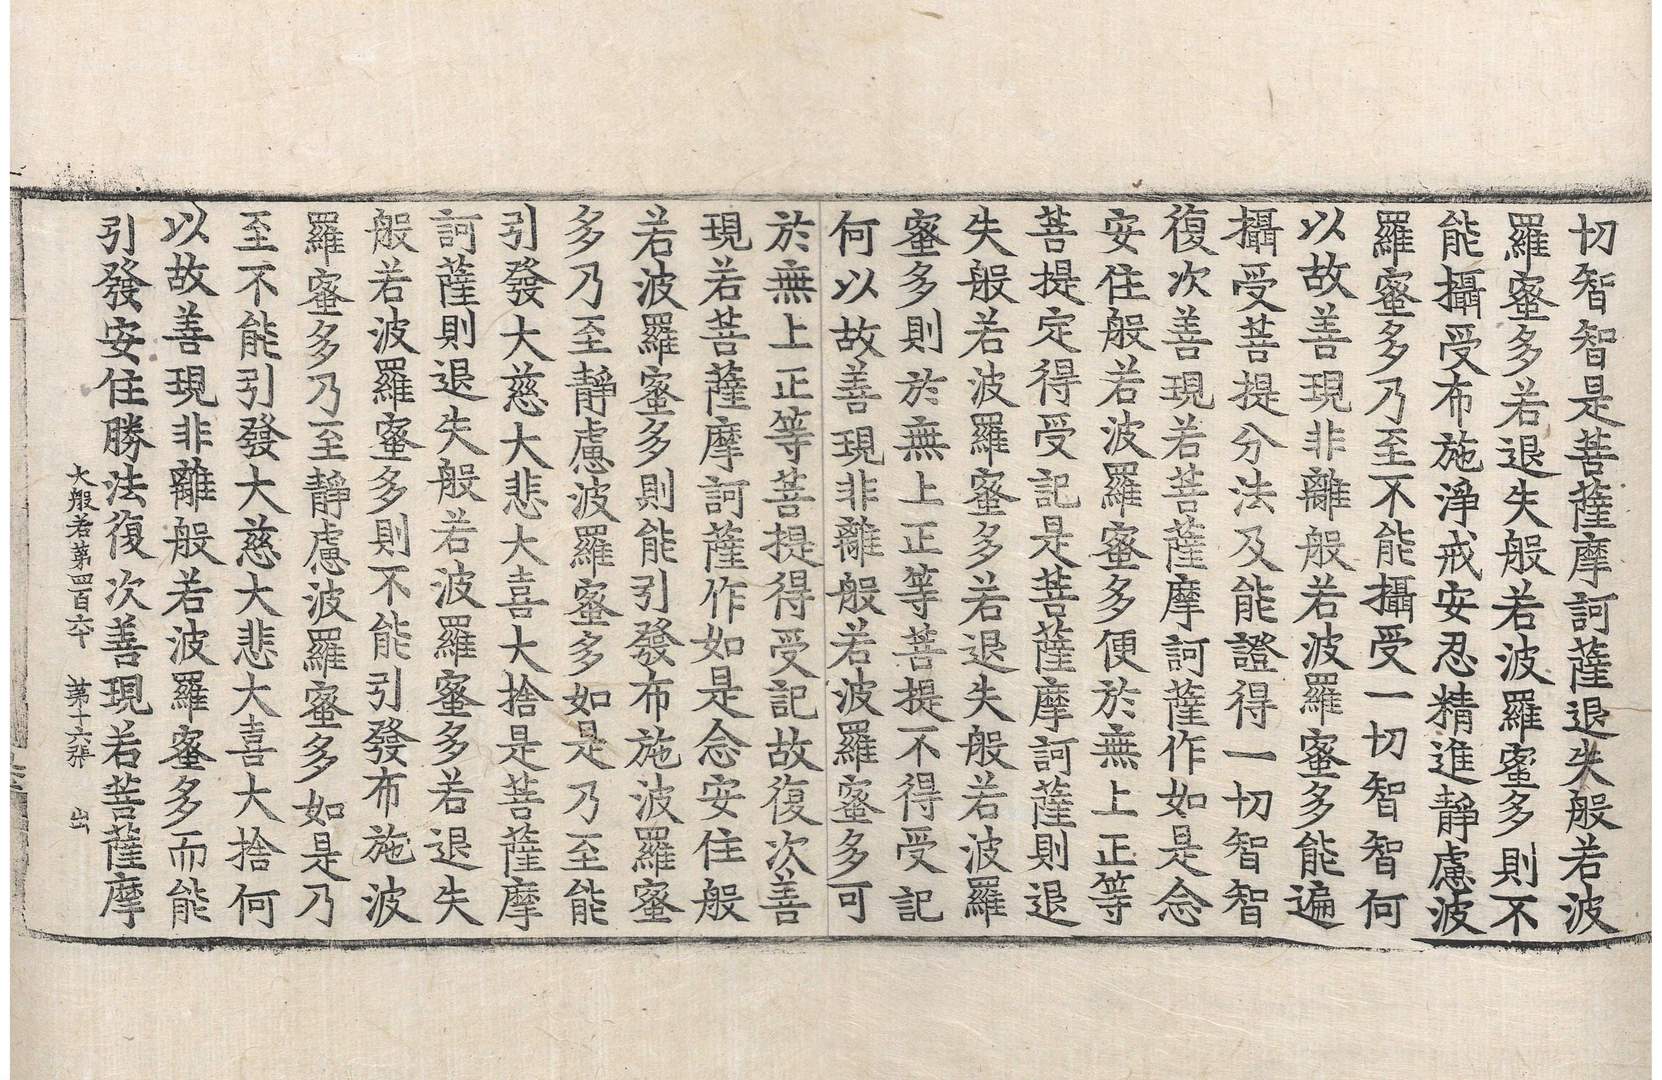 切智智是菩薩摩訶薩退失般若波
羅蜜多若退失般若波羅蜜多則不
能攝受布施淨戒安忍精進靜慮波
羅蜜多乃至不能攝受一切智智何
以故善現非離般若波羅蜜多能遍
攝受菩提分法及能證得一切智智
復次善現若菩薩摩訶薩作如是念
安住般若波羅蜜多便於無上正等
菩提定得受記是菩薩摩訶薩則退
失般若波羅蜜多若退失般若波羅
蜜多則於無上正等菩提不得受記
何以故善現非離般若波羅蜜多可
於無上正等菩提得受記故復次善
現若菩薩摩訶薩作如是念安住般
若波羅蜜多則能引發布施波羅蜜
多乃至靜慮波羅蜜多如是乃至能
引發大慈大悲大喜大捨是菩薩摩
訶薩則退失般若波羅蜜多若退失
般若波羅蜜多則不能引發布施波
羅蜜多乃至靜慮波羅蜜多如是乃
至不能引發大慈大悲大喜大捨何
以故善現非離般若波羅蜜多而能
引發安住勝法復次善現若菩薩摩
大般若第四百六十 第十六張 出